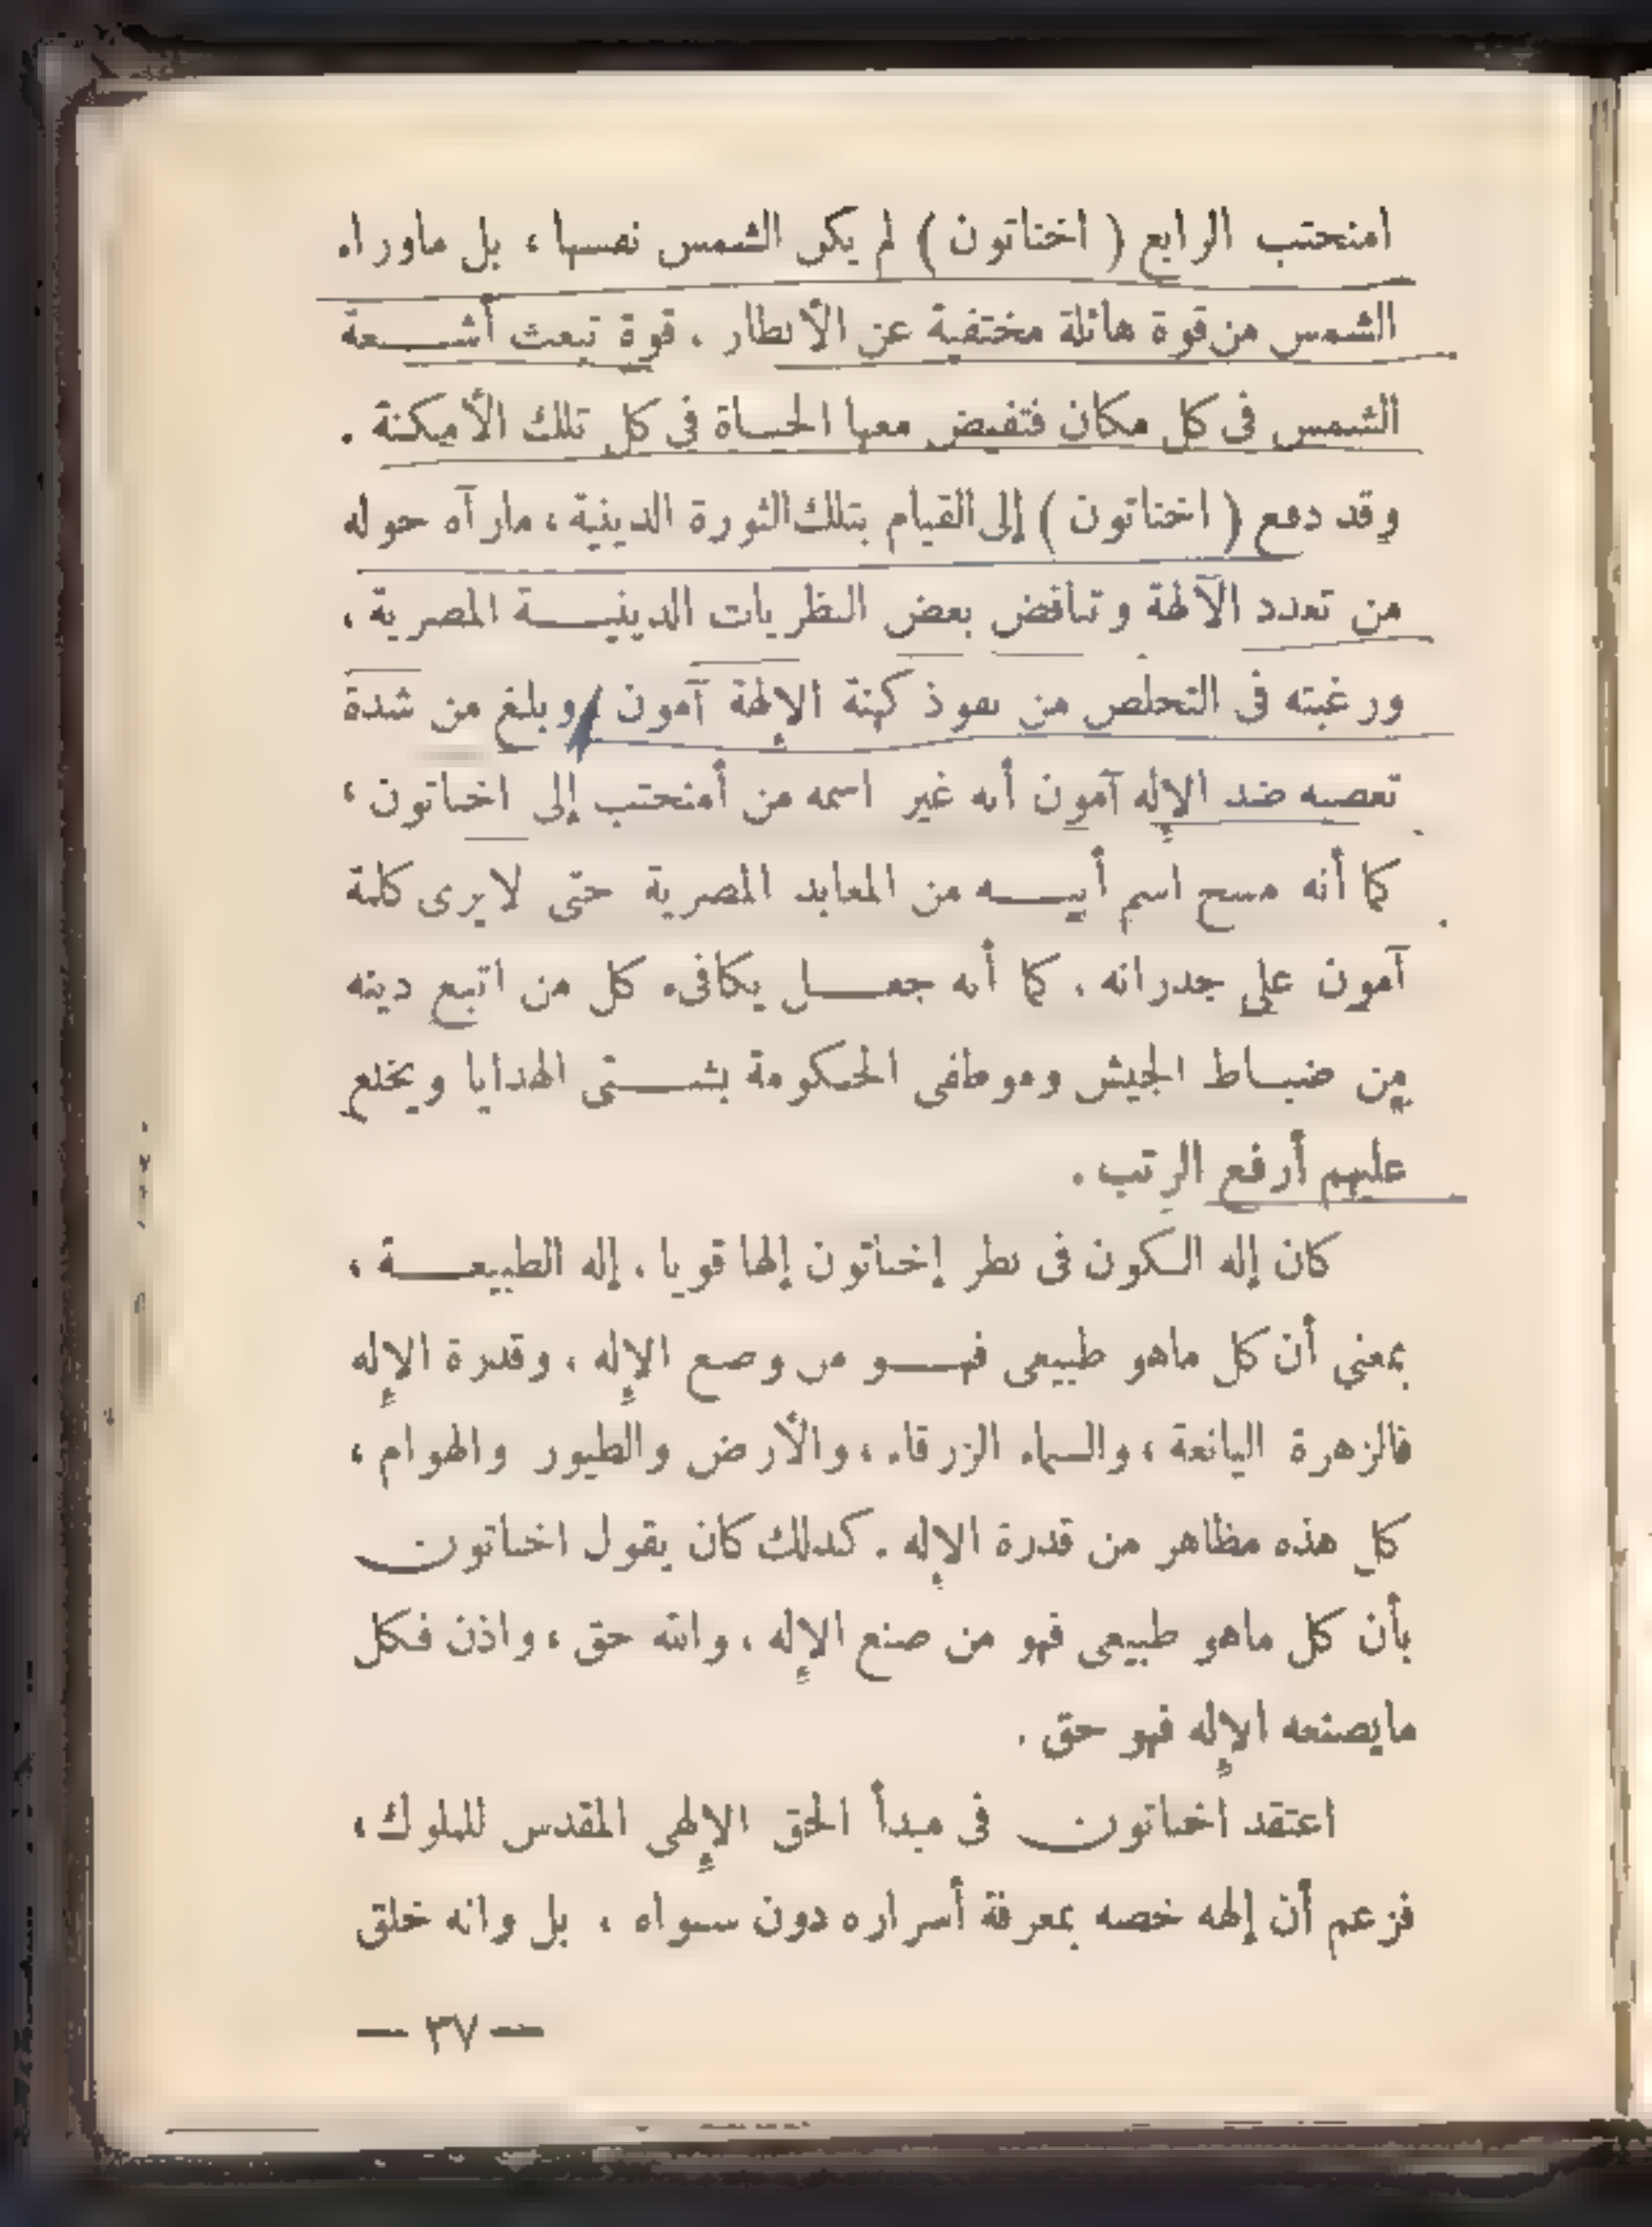 امنحتب الرابع ( اخناتون ) لم يكن الشمس نفسها ، بل ماوراء
الشمس من قوة هائلة مختفية عن الأنظار ، قوة تبعث أشعة
الشمس فى كل مكان فتفيض معها الحياة فى كل تلك الأمكنة .
وقد دفع ( اخناتون ) إلى القيام بتلك الثورة الدينية ، مارآه حوله
من تعدد الآلهة وتناقض بعض النظريات الدينية المصرية ،
ورغبته فى التخلص من نفوذ كهنة الإلهة آمون ، وبلغ من شدة
تعصبه ضد الإله آمون أنه غير اسمه من أمنحتب إلى اخناتون ،
كما أنه مسح اسم أبيه من المعابد المصرية حتى لايرى كلمة
آمون على جدرانه ، كما أنه جعل يكافىء كل من اتبع دينه
من ضباط الجيش وموظفى الحكومة بشتى الهدايا ويخلع
عليهم أرفع الرتب .
كان إله الكون فى نظر إخناتون إلها قويا ، إله الطبيعة ،
بمعني أن كل ماهو طبيعى فهو من وضع الإله ، وقدرة الإله
فالزهرة اليانعة ، والسماء الزرقاء ، والأرض والطيور والهوام ،
كل هذه مظاهر من قدرة الإله . كذلك كان يقول اخناتون
بأن كل ماهو طبيعى فهو من صنع الإله ، والله حق ، واذن فكل
مايصنعه الإله فهو حق .
اعتقد اخناتون فى مبدأ الحق الإلهى المقدس للملوك ،
فزعم أن إلهه خصه بمعرفة أسراره دون سواه ، بل وانه خلق
— ٣٧ —